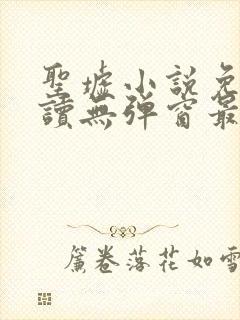 聖墟小說免
讀無彈窗最
簾卷落花如雪